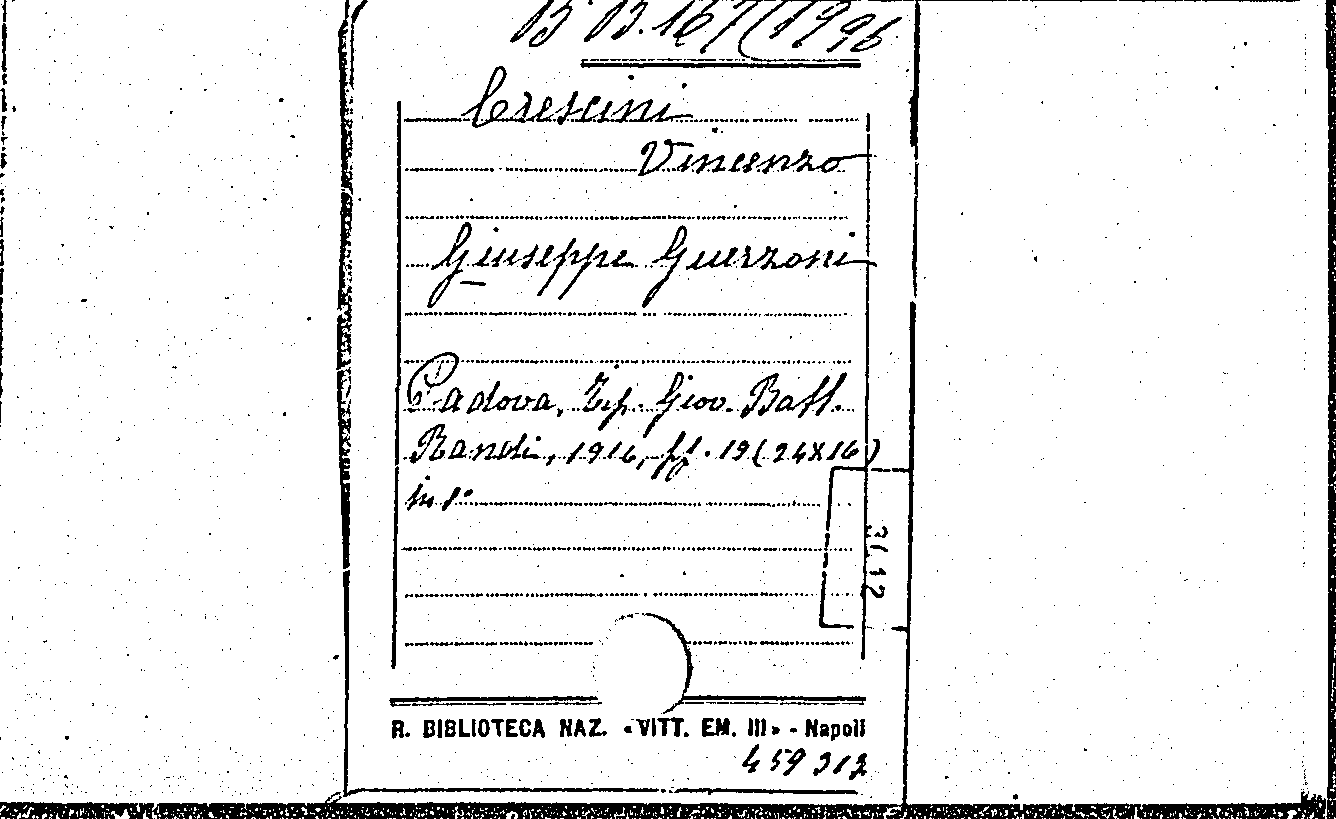 B. B. 167(1996
Crescini
Vincenzo
Giuseppe Guerzoni
Padova, Tip. Giov. Batt.
Randi, 1916, pp. 19 (24X16)
in 8°
31.12
R. BIBLIOTECA NAZ. «VITT. EM. III» - Napoli
459312